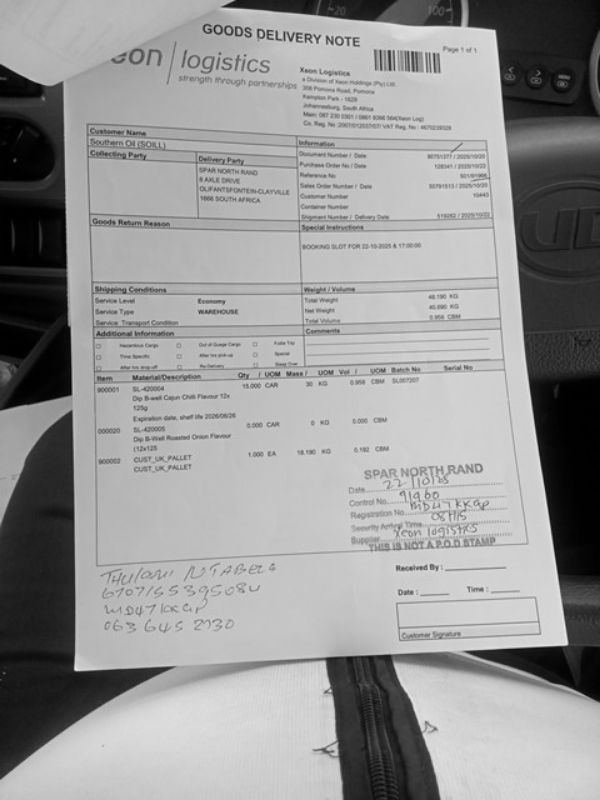 GOODS DELIVERY NOTE
Page 1 of 1
eon | logistics
strength through partnerships
Xeon Logistics
a Division of Xeon Holdings (Pty) Ltd.
306 Pomona Road, Pomona
Kempton Park - 1629
Johannesburg, South Africa
Main: 087 230 0351 / 0861 9366 564(Xeon Log)
Co. Reg. No :2007/012037/07/ VAT Reg. No : 4670239329
Customer Name
Southern Oil (SOILL)
Collecting Party
Delivery Party
SPAR NORTH RAND
8 AXLE DRIVE
OLIFANTSFONTEIN-CLAYVILLE
1666 SOUTH AFRICA
Information
Document Number / Date 80751377 / 2025/10/20
Purchase Order No / Date 128341 / 2025/10/22
Reference No 501/91966
Sales Order Number / Date 50791513 / 2025/10/20
Customer Number 10443
Container Number
Shipment Number / Delivery Date 519262 / 2025/10/22
Goods Return Reason
Special Instructions
BOOKING SLOT FOR 22-10-2025 & 17:00:00
Shipping Conditions
Service Level Economy
Service Type WAREHOUSE
Service Transport Condition
Weight / Volume
Total Weight 48.190 KG
Net Weight 40.690 KG
Total Volume 0.958 CBM
Additional Information
Hazardous Cargo Out of Guage Cargo Futile Trip
Time Specific After hrs pick-up Special
After hrs drop-off Re-Delivery Sleep Over
Comments
Item Material/Description Qty / UOM Mass / UOM Vol / UOM Batch No Serial No
900001 SL-420004 15.000 CAR 30 KG 0.958 CBM SL007207
Dip B-well Cajun Chilli Flavour 12x
125g
Expiration date, shelf life 2026/06/26
000020 SL-420005 0.000 CAR 0 KG 0.000 CBM
Dip B-Well Roasted Onion Flavour
(12x125
900002 CUST_UK_PALLET 1.000 EA 18.190 KG 0.192 CBM
CUST_UK_PALLET
SPAR NORTH RAND
Date 22/10/25
Control No. 91960
Registration No. MD47KKGP
Security Arrival Time
Supplier Xeon logistics
THIS IS NOT A P.O.D STAMP
Received By :
Date : Time :
Customer Signature
MD47KKGP
063 645 2730
20
100
MENU
UD